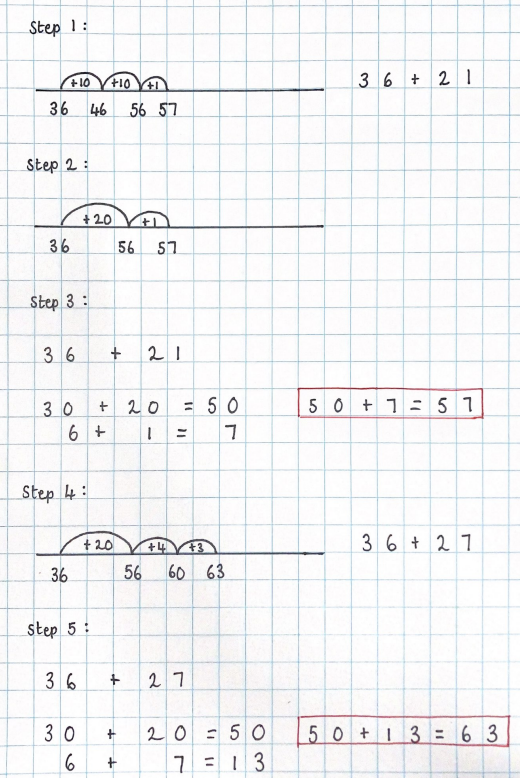 Step 1:
+10 +10 +1
36 46 56 57
36 + 21
Step 2:
+20 +1
36 56 57
Step 3:
36 + 21
30 + 20 = 50
50 + 7 = 57
6 + 1 = 7
Step 4:
+20 +4 +3
36 56 60 63
36 + 27
Step 5:
36 + 27
30 + 20 = 50
50 + 13 = 63
6 + 7 = 13